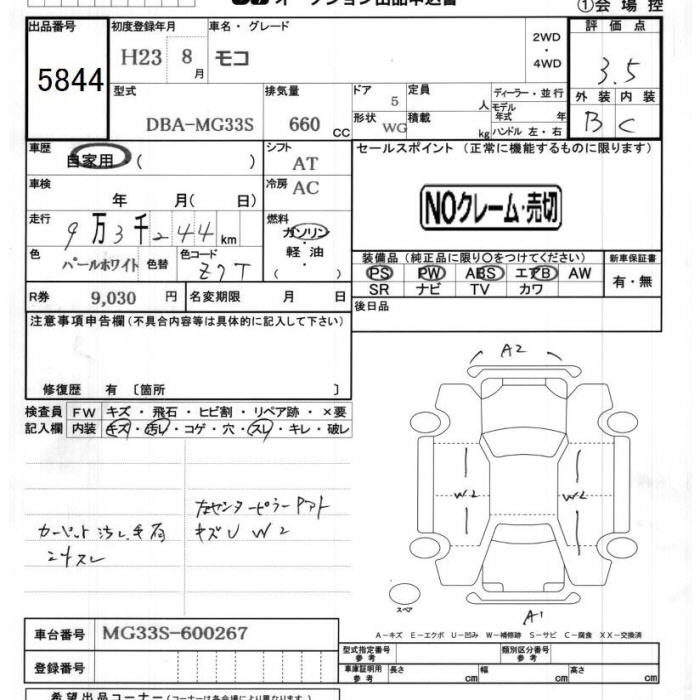 オークション出品申込書
①会場控
出品番号 初度登録年月 車名・グレード 評価点
5844 H23 8月 モコ 2WD・4WD 3.5
型式 排気量 ドア 定員 ディーラー・並行 外装 内装
DBA-MG33S 660 CC 5 人 モデル年式 年 B C
形状 WG 積載 kg ハンドル 左・右
車歴 自家用 ( ) シフト AT セールスポイント (正常に機能するものに限ります)
車検 年 月( 日) 冷房 AC
NOクレーム・売切
走行 9万3千244km 燃料 ガソリン・軽油 ( )
色 パールホワイト 色替 色コード Z7T
装備品 (純正品に限り○をつけてください) 新車保証書
PS PW ABS エアB AW 有・無
SR ナビ TV カワ
R券 9,030 円 名変期限 月 日 後日品
注意事項申告欄(不具合内容等は具体的に記入して下さい)
A2
修復歴 有 〔箇所 〕
検査員 FW キズ・飛石・ヒビ割・リペア跡・×要
記入欄 内装 キズ・汚レ・コゲ・穴・スレ・キレ・破レ
W2 W2
左センターピラー
カーペット汚レ キズU W2
スレ
スペア
A1
A-キズ E-エクボ U-凹み W-補修跡 S-サビ C-腐食 XX-交換済
車台番号 MG33S-600267
型式指定番号 参考 類別区分番号 参考
登録番号 車庫証明用 参考 長さ cm 幅 cm 高さ cm
希望出品コーナー(コーナーは各会場により異なります)